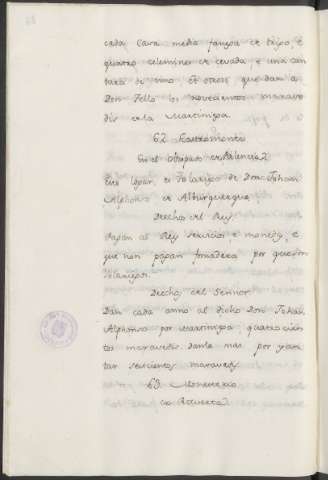 cada Casa media fanega de trigo, e
quatro celemines de cevada, e una can
tara de vino. Et otrosi que dan a
Don Tello los novecientos marave
dis de la Martiniega.
62 Castromonte
En el Obispado de Palencia
Este logar, es Solariego de Don Johan
Alphonso de Alburquerque
Derechos del Rey
Pagan al Rey servicios, e moneda, e
que non pagan fonsadera por quanto son
Solariegos.
Derechos del Sennor
Dan cada anno al dicho Don Johan
Alphonso por martiniega quatrocien
tos maravedis danle mas por yan
tar seiscientos maravedis
63 Monesterio